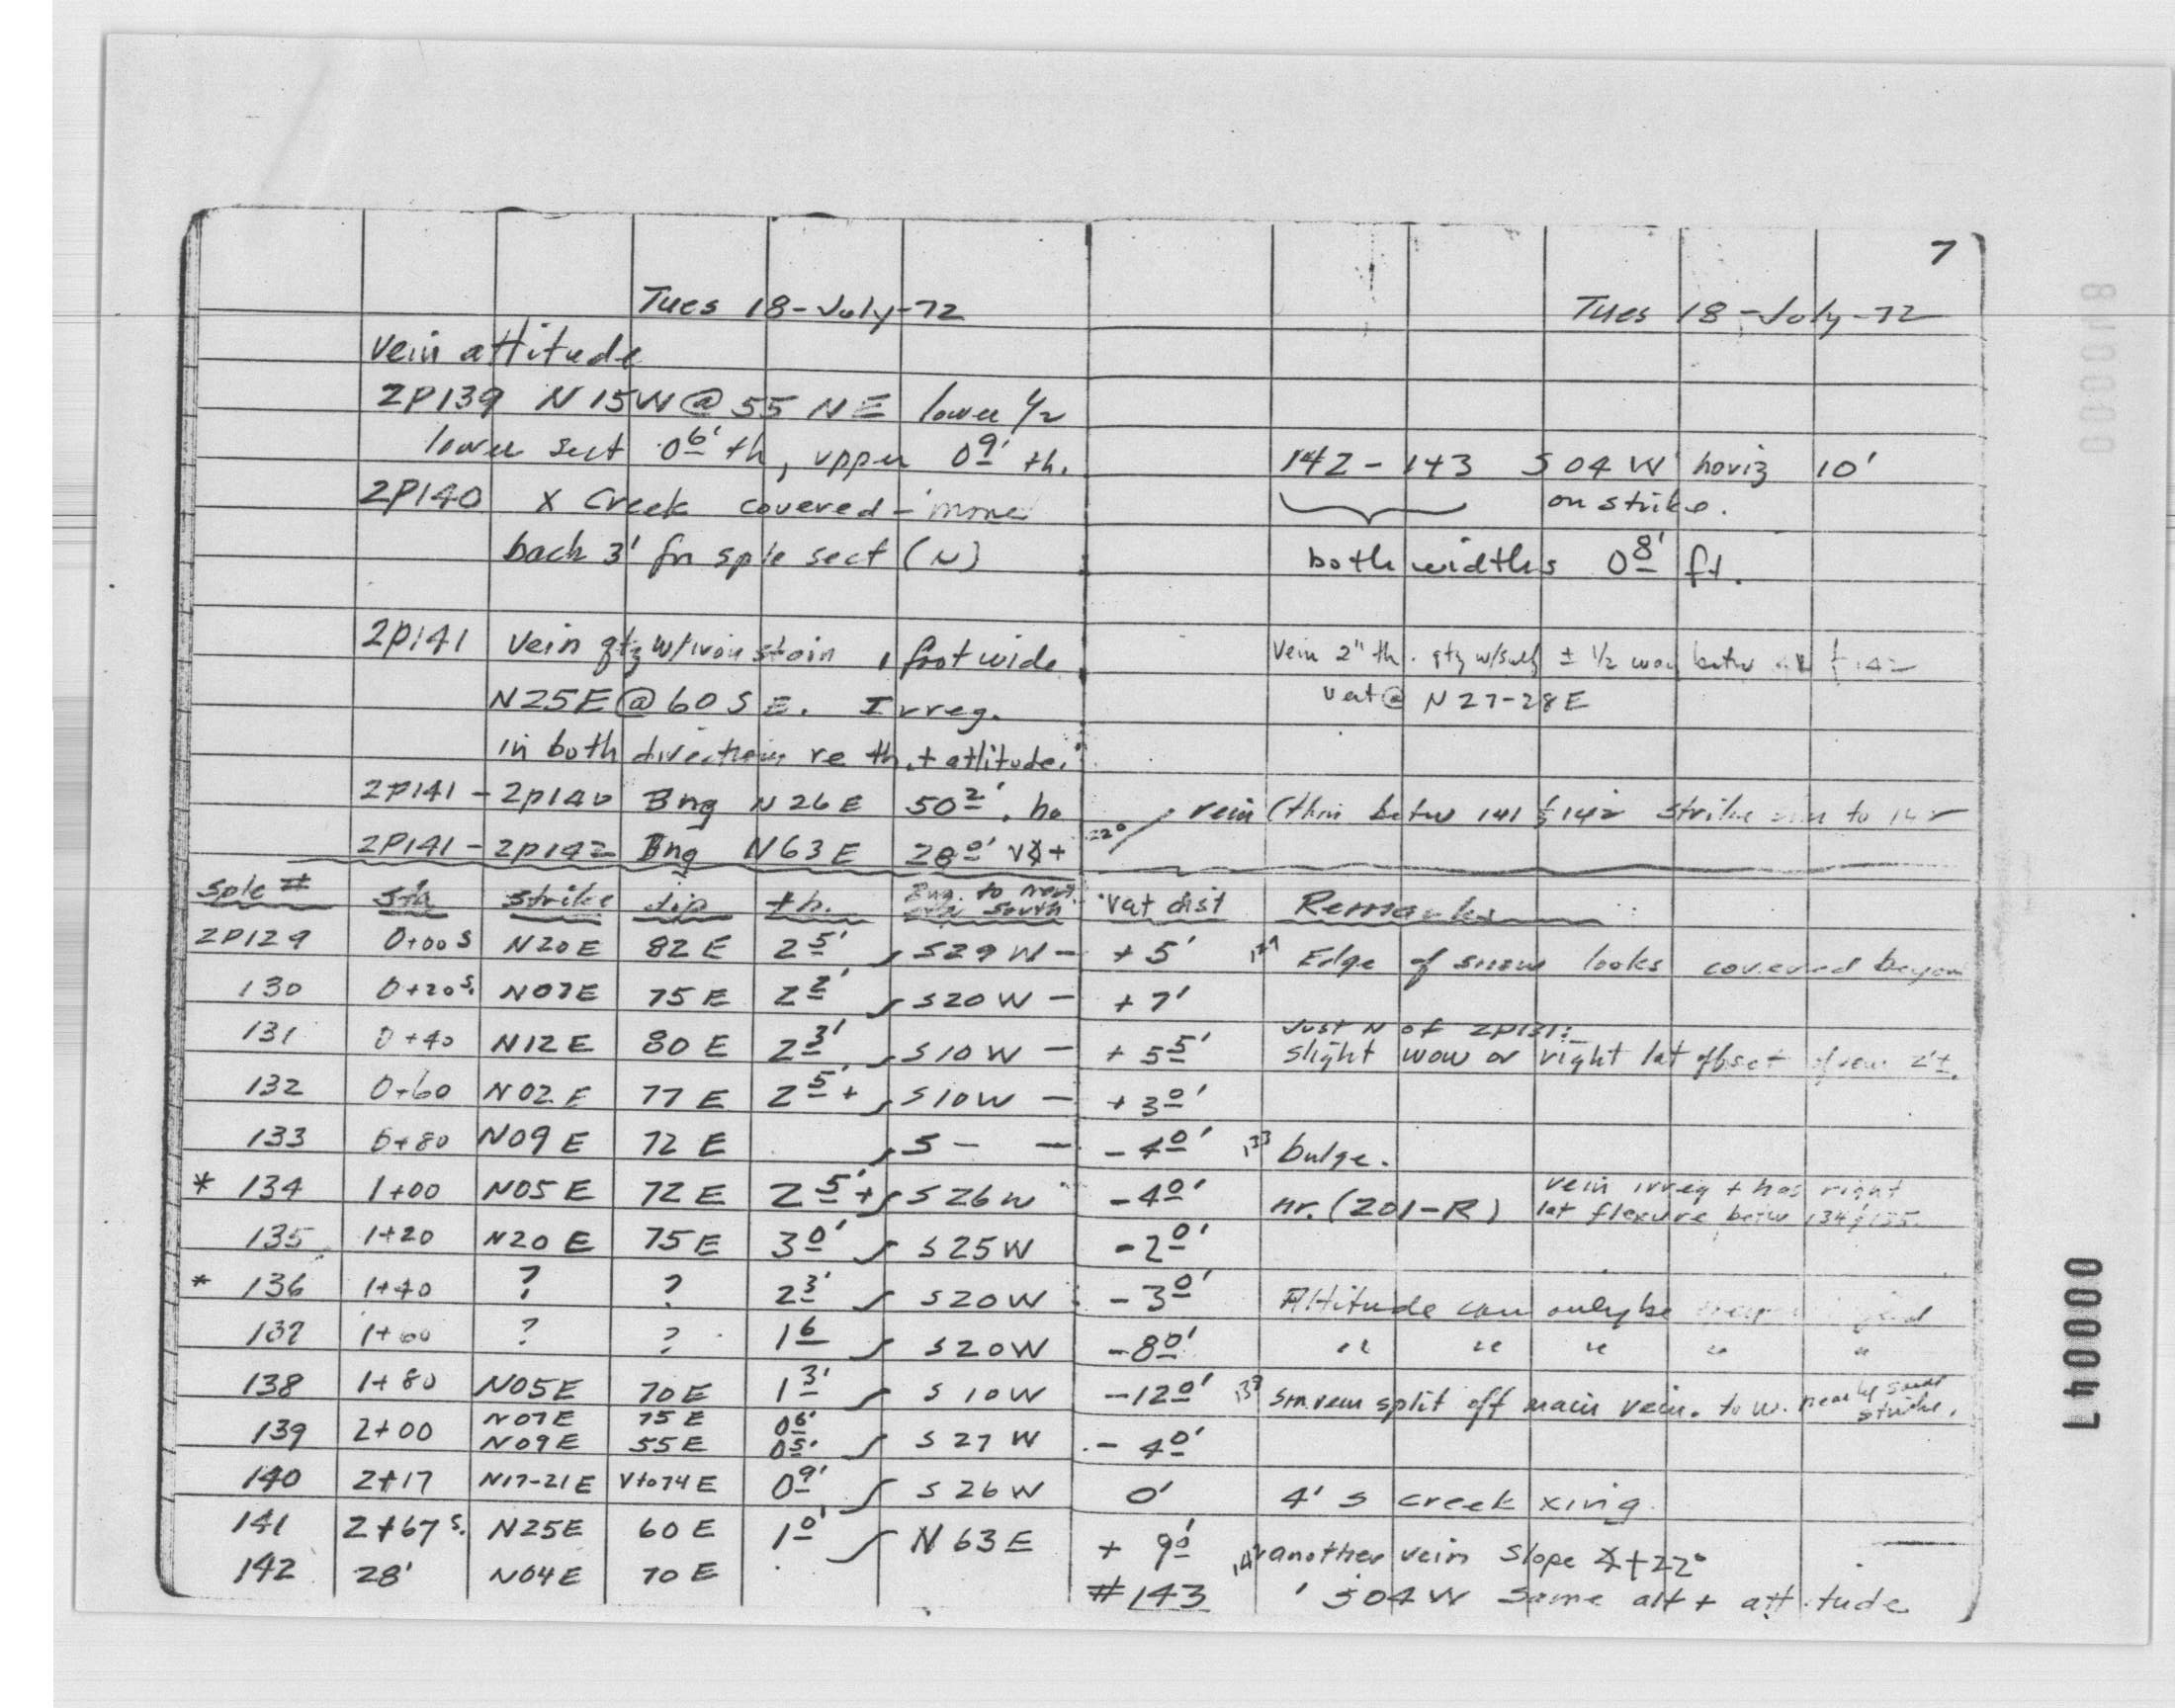 7
Tues 18-July-72
Tues 18-July-72
Vein attitude
2P139 N15W@55NE lower 1/2
lower sect 0 6' th, upper 0 9' th.
2P140 X Creek covered - move
back 3' fn sple sect (N)
2P141 Vein qtz w/iron stain 1 foot wide
N25E@60SE. Irreg.
in both directions re th. + attitude.
2P141 - 2P140 Bng N26E 50 2'. ho
2P141 - 2P142 Bng N63E 28 0' V∡+
142 - 143 S04W horiz 10'
on strike.
both widths 0 8' ft.
Vein 2" th. qtz w/sulf ± 1/2 way betw & 142
N27-28E
22° vein (thin betw 141 & 142 strike to 142
sple # sta strike dip th. Bng. to next south Vat dist Remarks
2P129 0+00S N20E 82E 2 5' S29W - +5' 129 Edge of snow looks covered beyond
130 0+20S. N07E 75E 2 2' S20W - +7'
131 0+40 N12E 80E 2 3' S10W - +5 5' Just N of 2P131: slight wow or right lat offset of vein 2'±.
132 0+60 N02E 77E 2 5'+ S10W - +3 0'
133 0+80 N09E 72E S - - -4 0' 133 bulge.
* 134 1+00 N05E 72E 2 5'+ S26W -4 0' nr. (201-R) vein irreg + has right lat flexure betw 134 & 135.
135 1+20 N20E 75E 3 0' S25W -2 0'
* 136 1+40 ? ? 2 3' S20W -3 0' Attitude can only be
137 1+60 ? ? 1 6 S20W -8 0' " " " " "
138 1+80 N05E 70E 1 3' S10W -12 0' sm. vein split off main vein. to W. nearly same strike.
139 2+00 N07E 75E 0 6' S27W -4 0'
N09E 55E 0 5'
140 2+17 N17-21E Vto74E 0 9' S26W 0' 4' S creek xing.
141 2+67S. N25E 60E 1 0' N63E +9 0'
142 28' N04E 70E 142 another vein slope ∡+22°
#143 S04W same alt + attitude
80000
00047